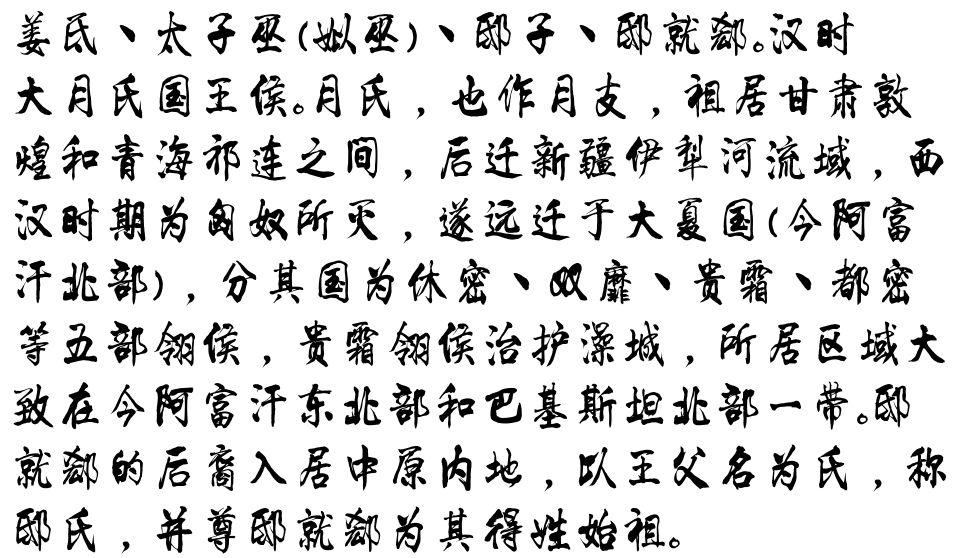 姜氏、太子巫(姒巫)、邸子、邸就郄。汉时
大月氏国王侯。月氏，也作月支，祖居甘肃敦
煌和青海祁连之间，后迁新疆伊犁河流域，西
汉时期为匈奴所灭，遂远迁于大夏国(今阿富
汗北部)，分其国为休密、双靡、贵霜、都密
等五部翎侯，贵霜翎侯治护澡城，所居区域大
致在今阿富汗东北部和巴基斯坦北部一带。邸
就郄的后裔入居中原内地，以王父名为氏，称
邸氏，并尊邸就郄为其得姓始祖。